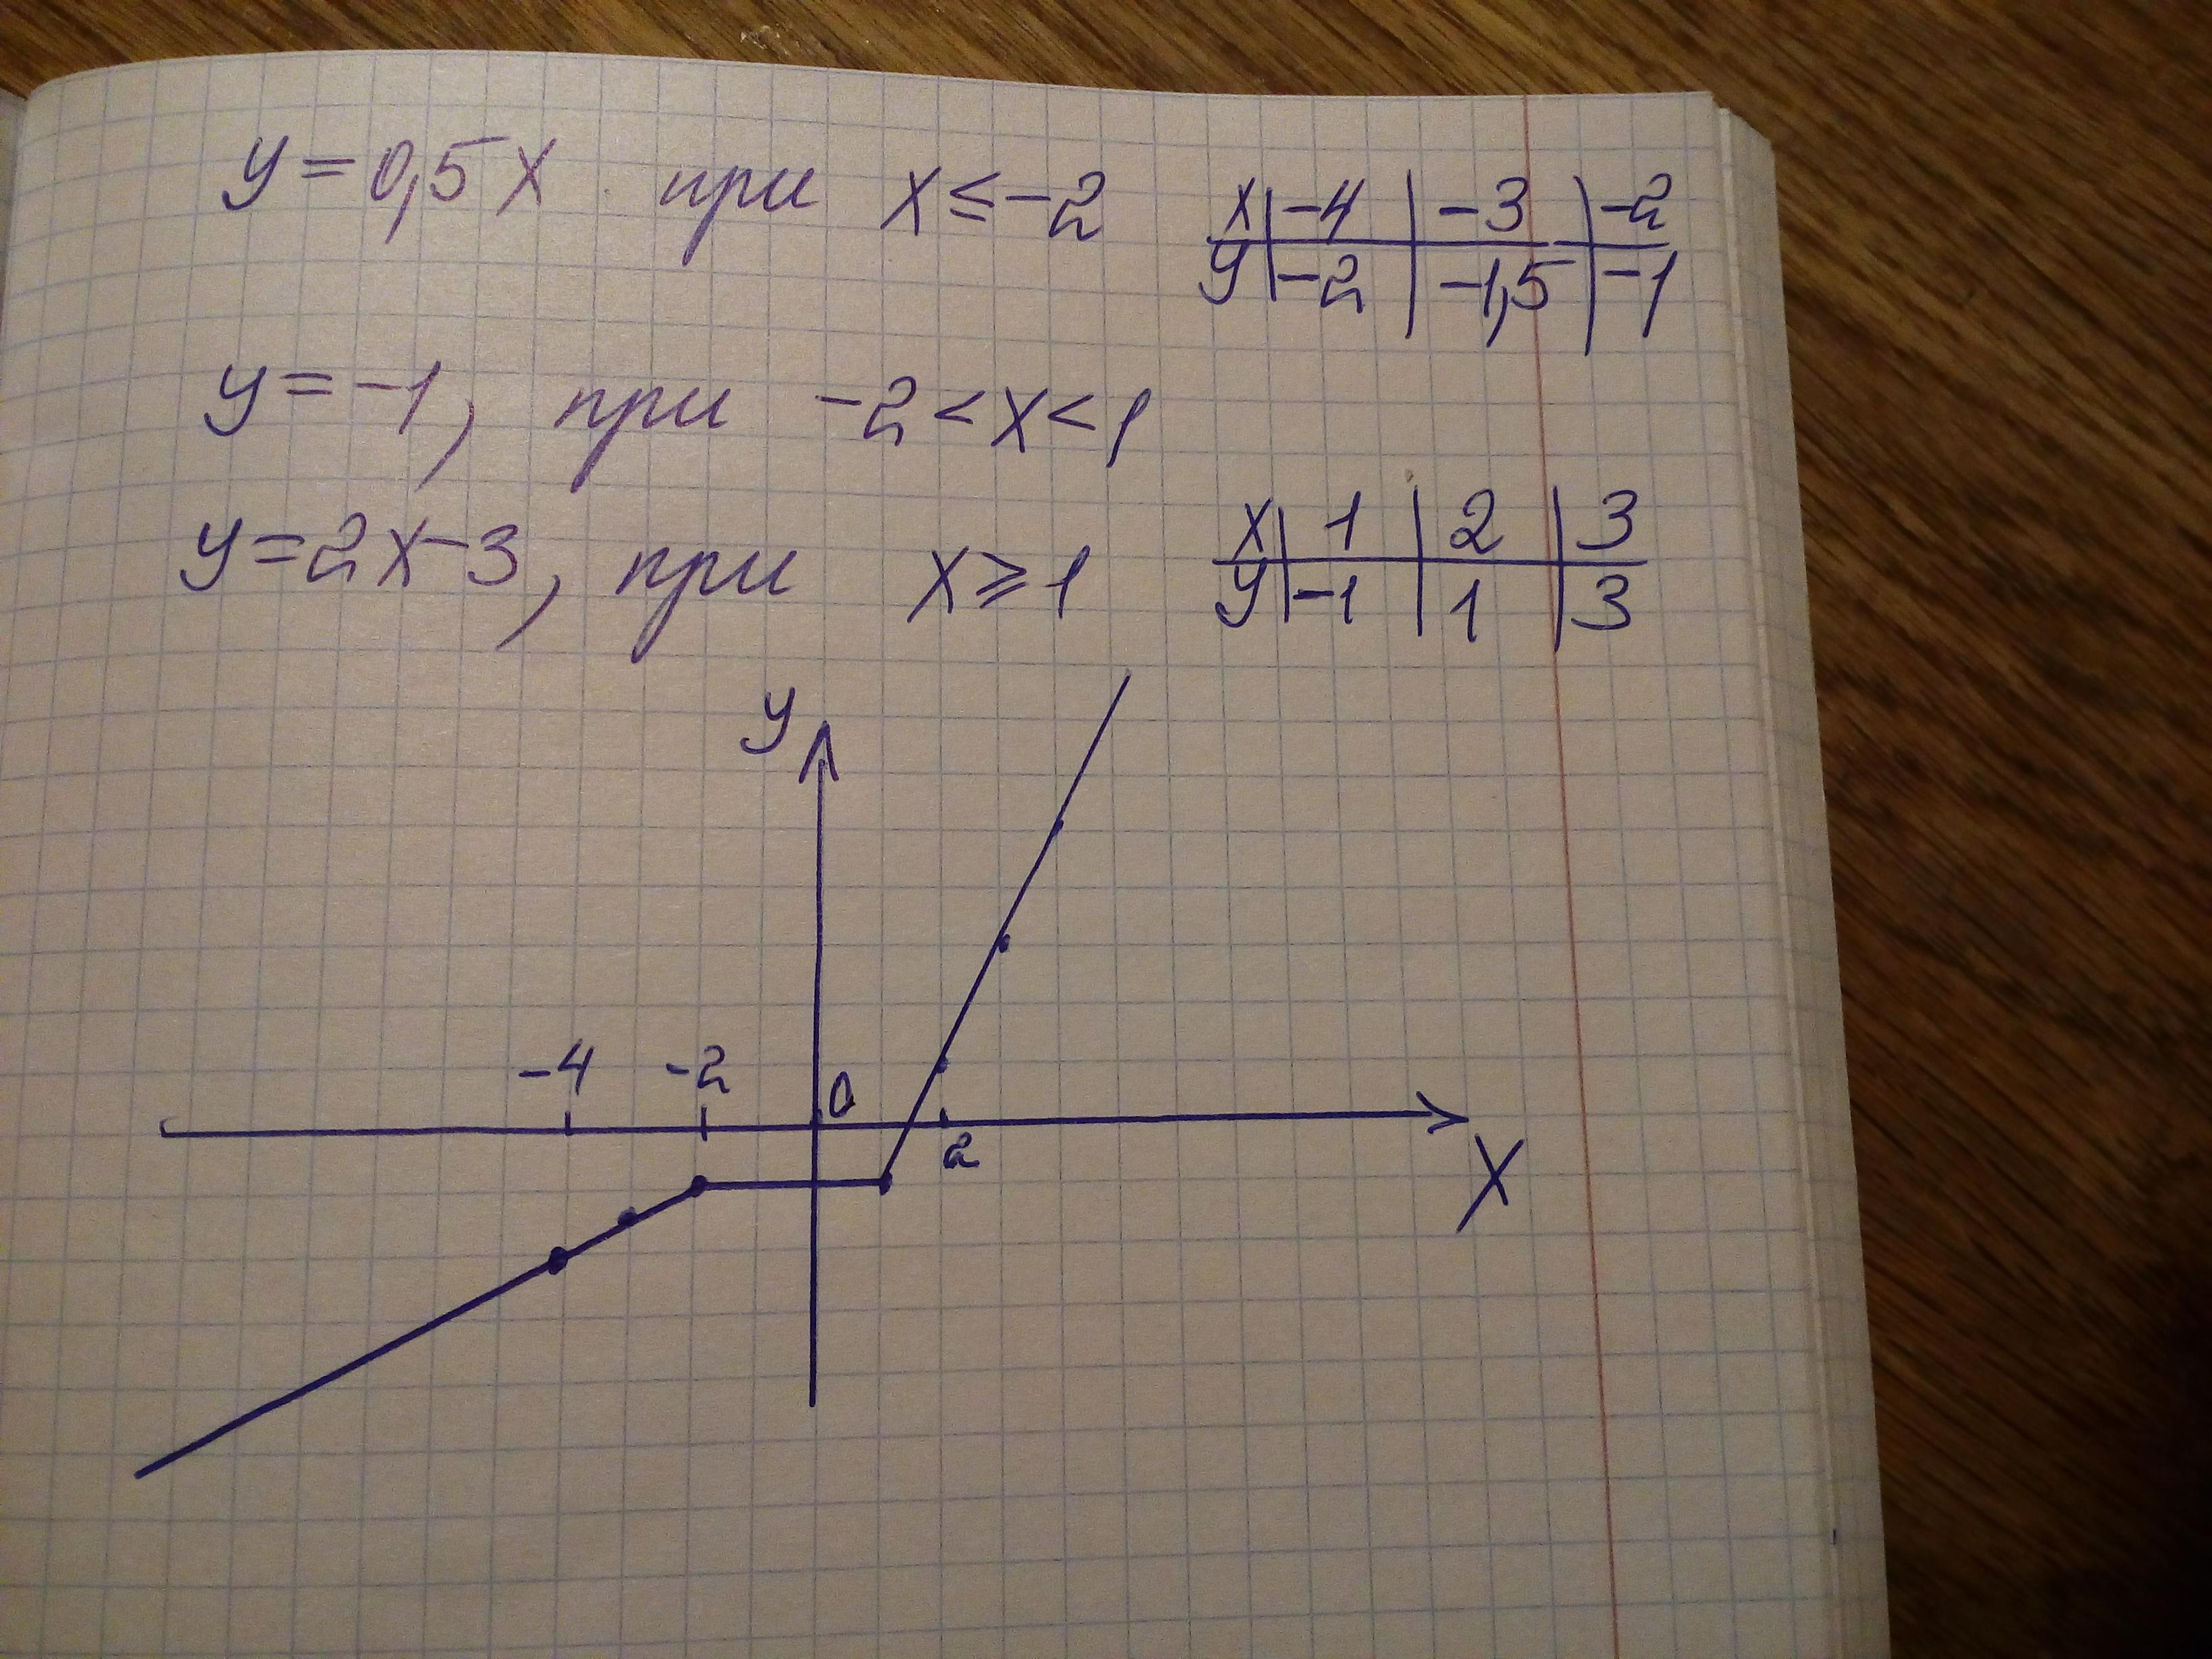 y = 0,5x при x ≤ -2
x | -4 | -3 | -2
y | -2 | -1,5 | -1
y = -1, при -2 < x < 1
y = 2x - 3, при x ≥ 1
x | 1 | 2 | 3
y | -1 | 1 | 3
y
-4 -2 0
2
X